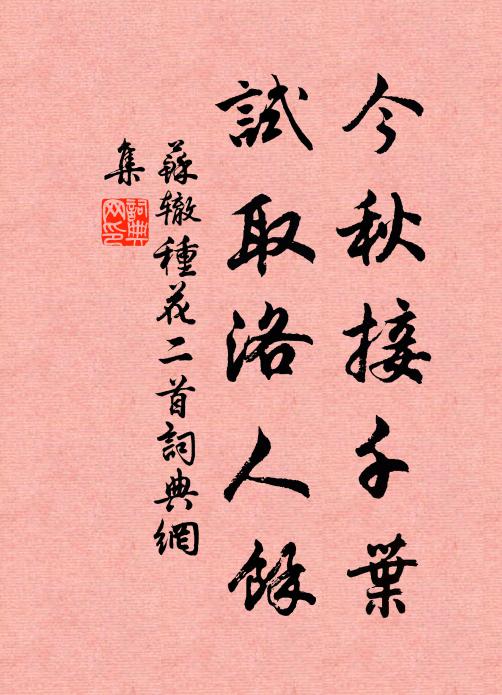 今秋接千葉
試取洛人餘
蘇轍種花二首詞典網
集
詞典
网印